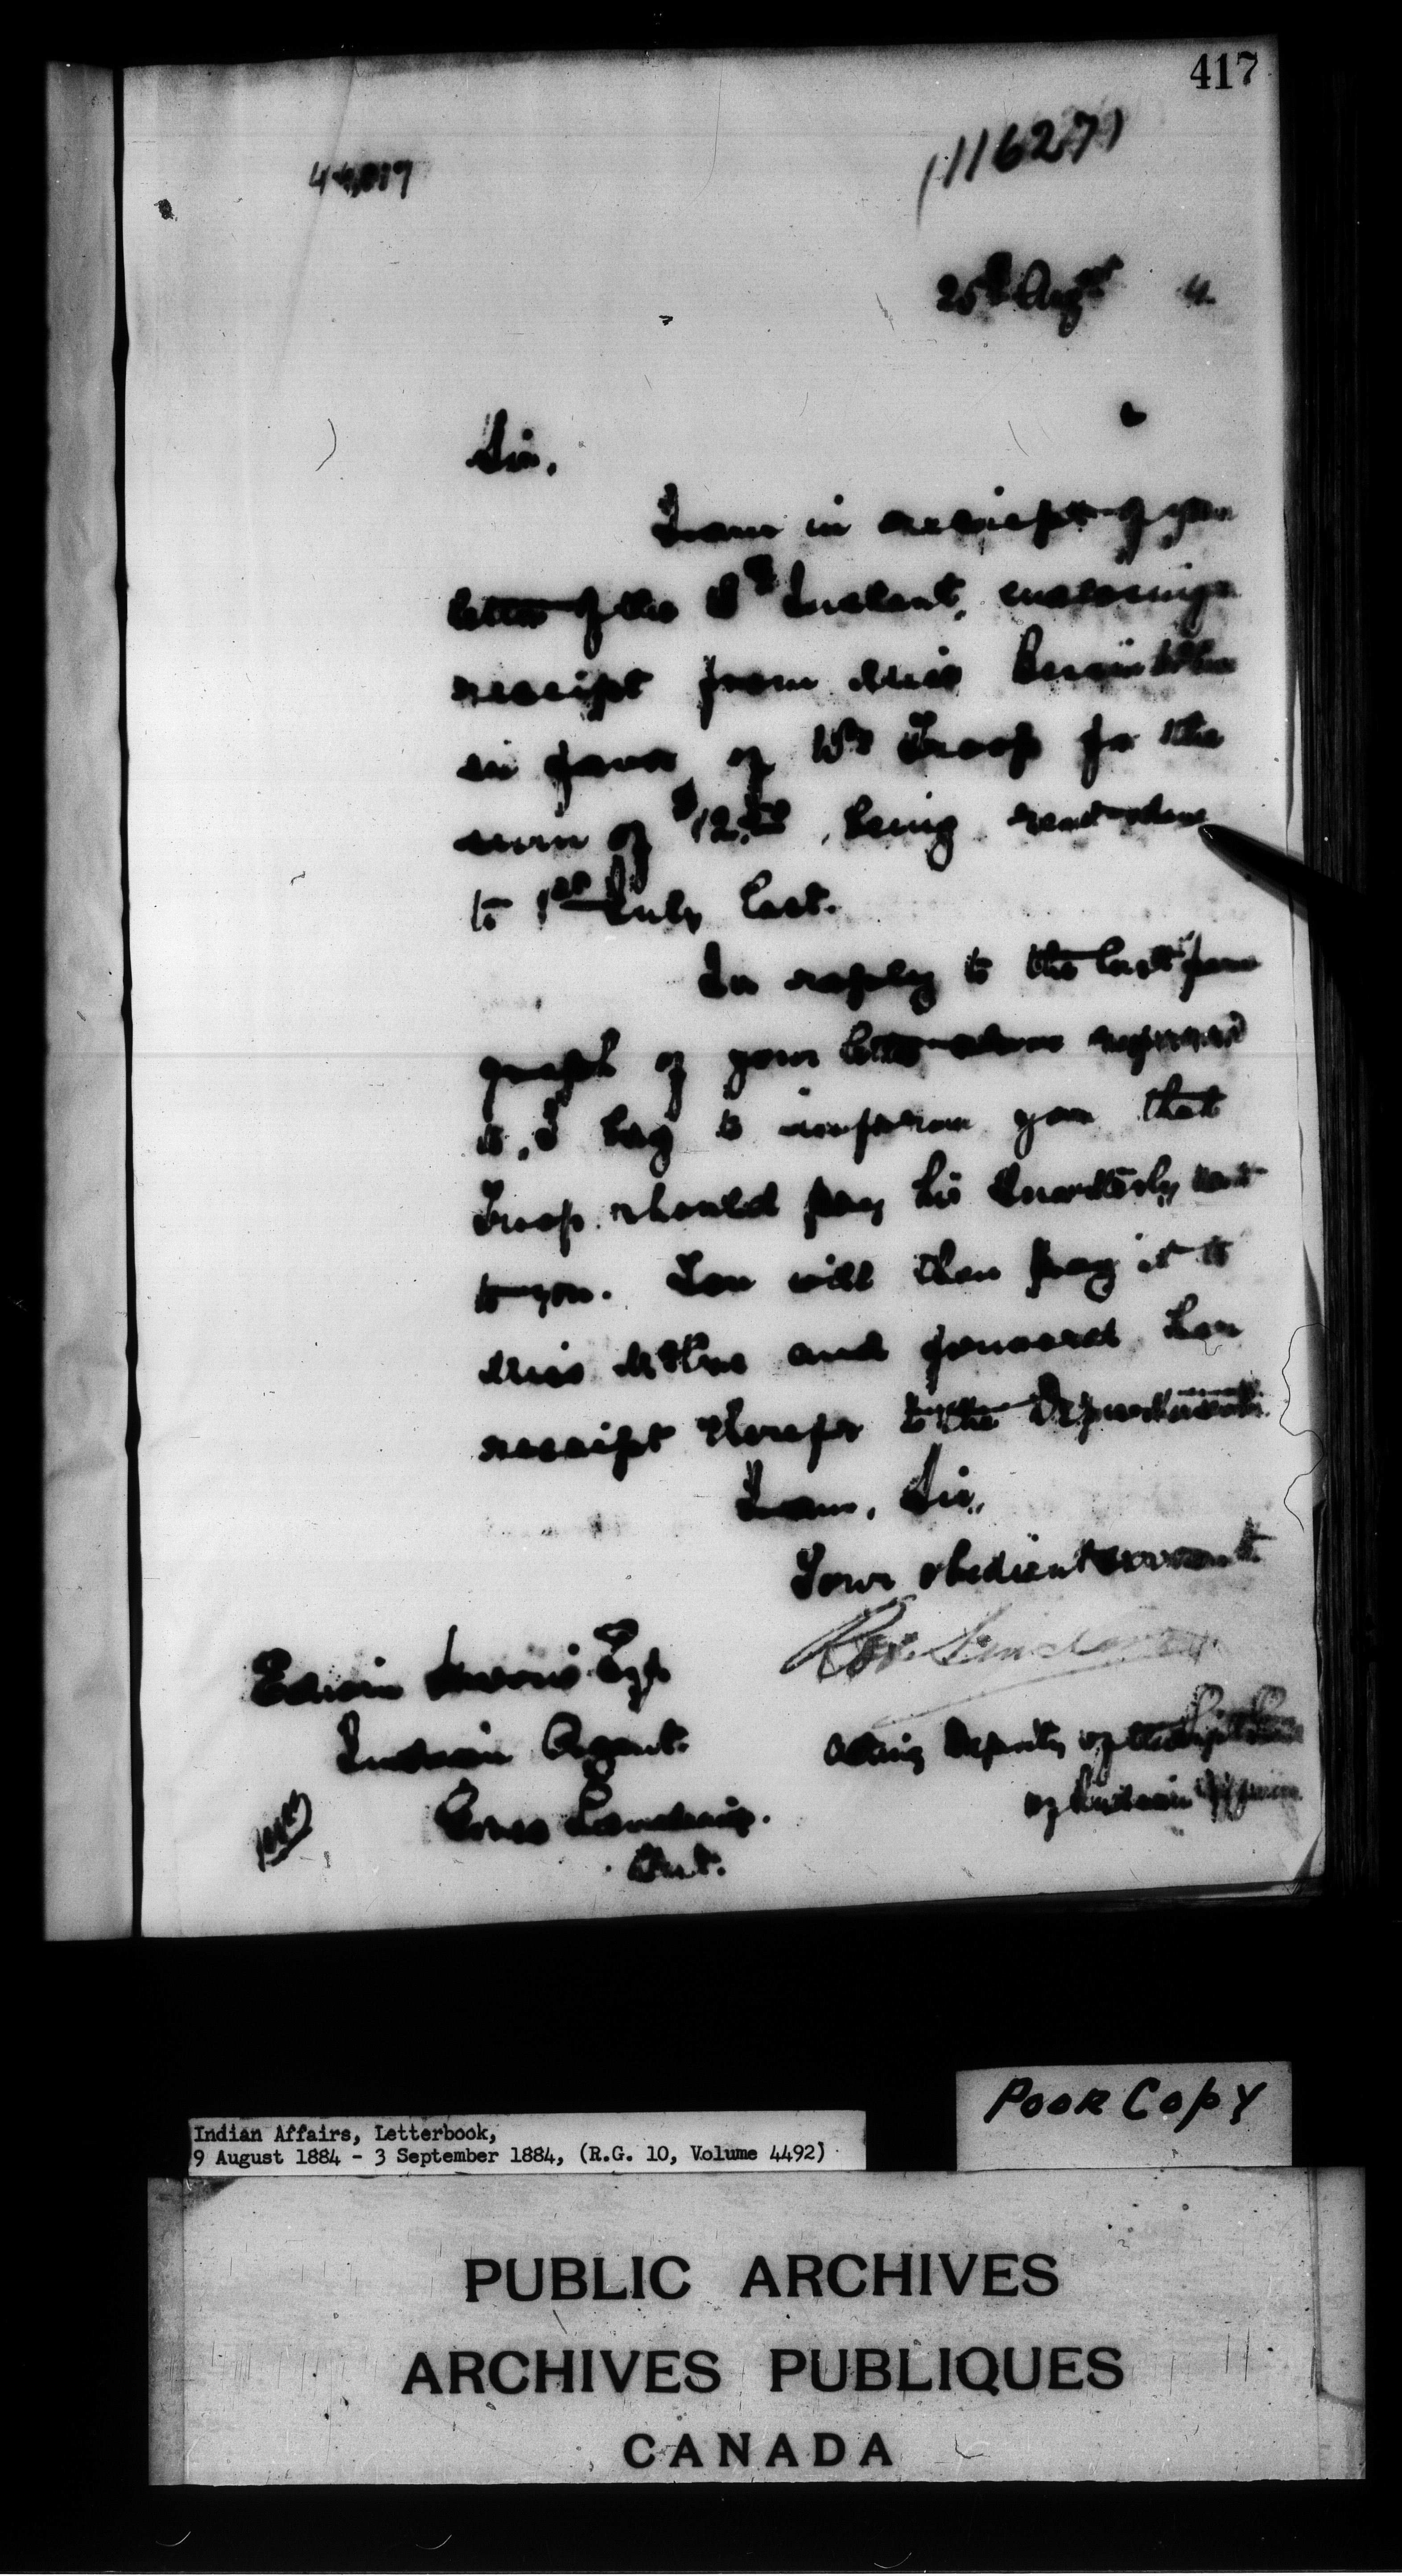 417
11627
25th Augst 4
Sir,
I am in receipt of your
letter of the Instant, enclosing
receipt from Miss
in favor of Wm Troop for the
sum of $12. , being rent due
to 1st July last.
In reply to the last para
graph of your letter above referred
to, I beg to inform you that
Troop should pay his Quarterly rent
to you. You will then pay it to
Miss and forward her
receipt therefor to the Department.
I am, Sir,
Your obedient servant
Robt Sinclair
Edwin Esqr
Indian Agent. Acting Deputy of the Supt Gen
of Indian Affairs
Ont.
Poor Copy
Indian Affairs, Letterbook,
9 August 1884 - 3 September 1884, (R.G. 10, Volume 4492)
PUBLIC ARCHIVES
ARCHIVES PUBLIQUES
CANADA